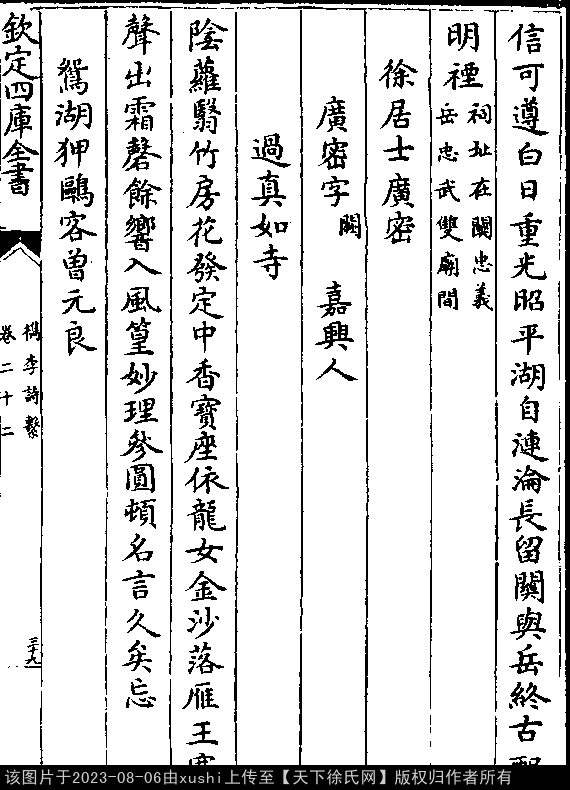 信可遵白日重光昭平湖自漣淪長留關與岳終古配
明禋祠址在關忠義
岳忠武雙廟間
徐居士廣密
廣密字闕 嘉興人
過真如寺
陰蘿翳竹房花發定中香寶座依龍女金沙落雁王
聲出霜磬餘響入風篁妙理參圓頓名言久矣忘
鴛湖狎鷗客曾元良
欽定四庫全書
檇李詩繫
卷二十二
三十九
该图片于2023-08-06由xushi上传至【天下徐氏网】版权归作者所有